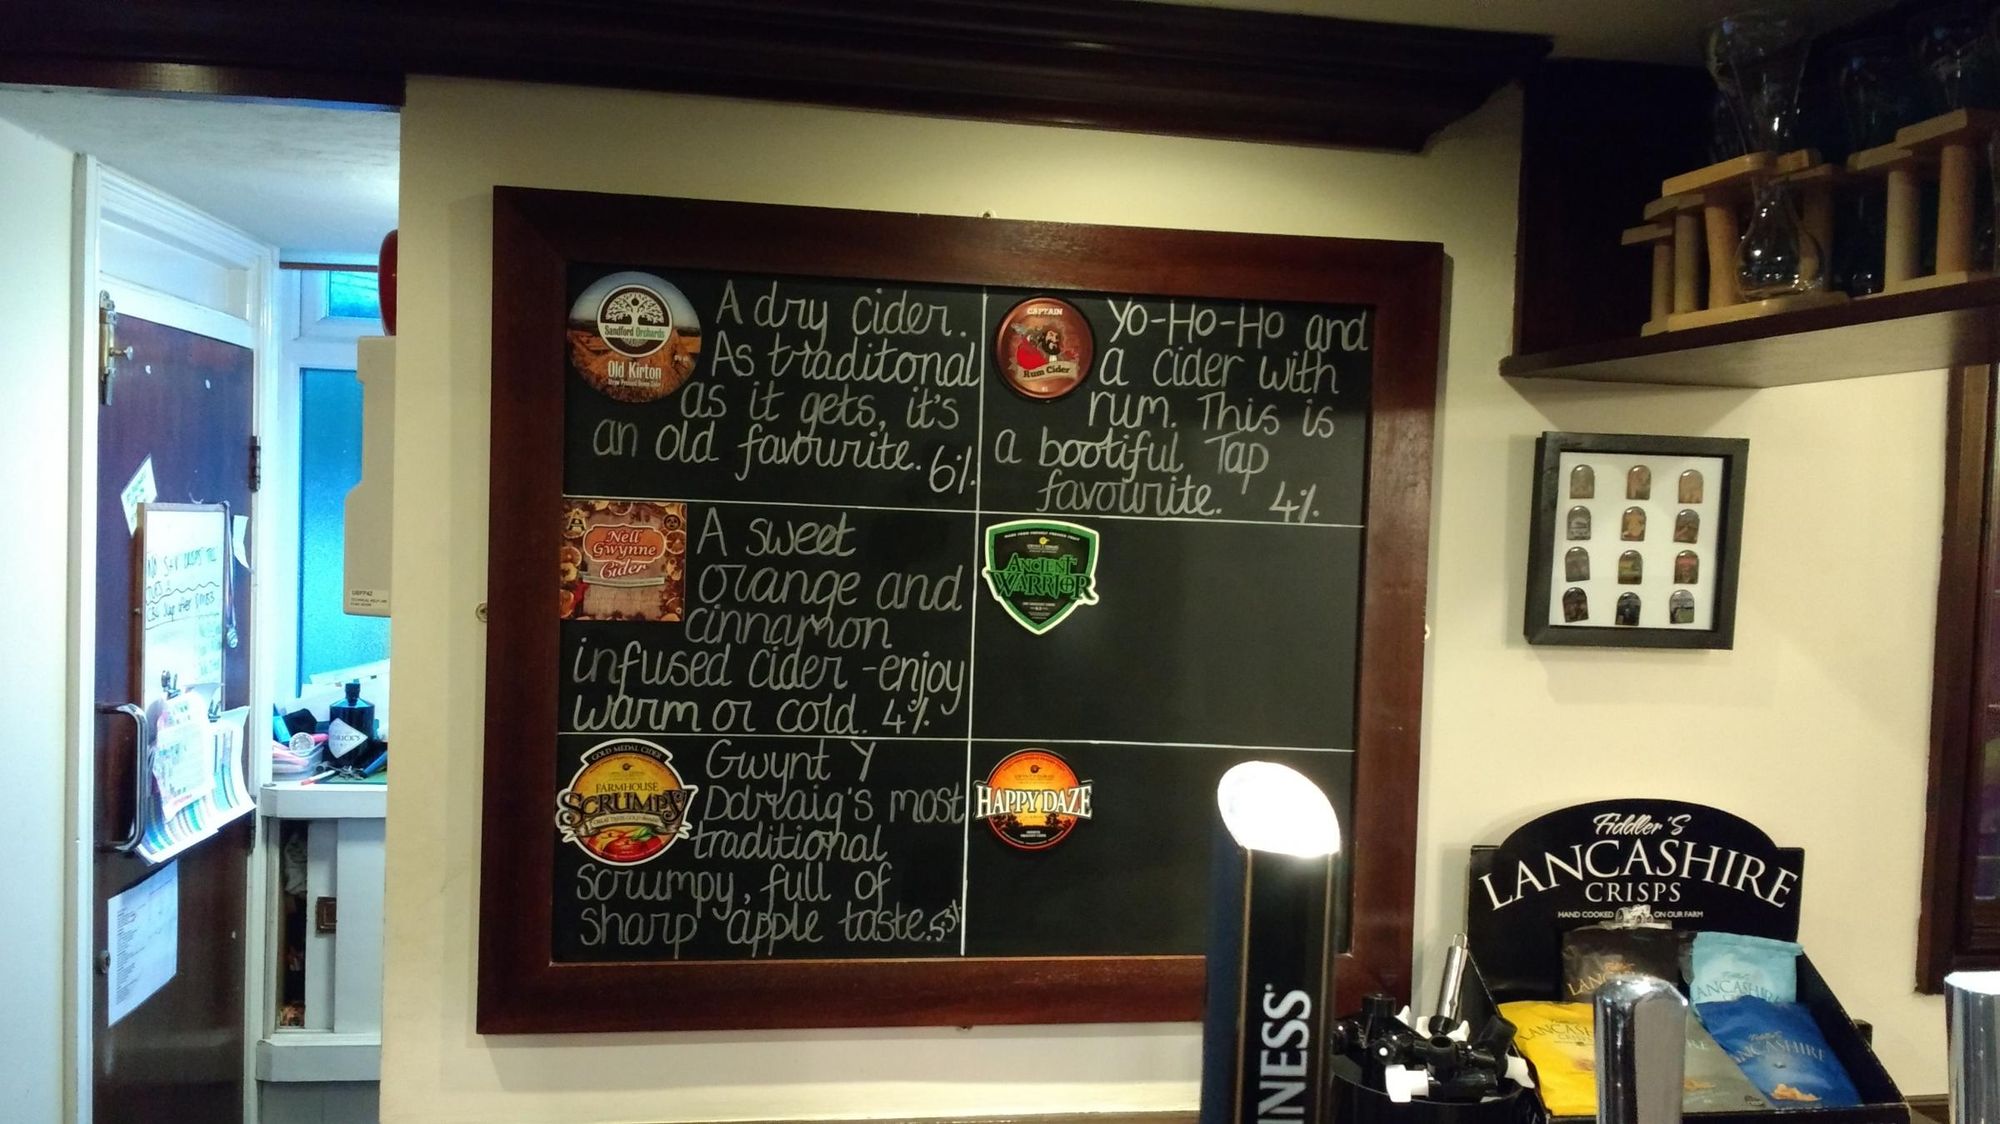 Sandford Orchards
Old Kirton
A dry cider.
As traditonal
as it gets, it's
an old favourite. 6%
CAPTAIN
Rum Cider
Yo-Ho-Ho and
a cider with
rum. This is
a bootiful Tap
favourite. 4%
Nell
Gwynne
Cider
A sweet
orange and
cinnamon
infused cider - enjoy
warm or cold. 4%
ANCIENT
WARRIOR
GOLD MEDAL CIDER
FARMHOUSE
SCRUMPY
Gwynt Y
Ddraig's most
traditional
scrumpy, full of
sharp apple taste. 5.3%
HAPPY DAZE
INESS
Fiddler's
LANCASHIRE
CRISPS
HAND COOKED ON OUR FARM
LANCASHIRE
LANCASHIRE